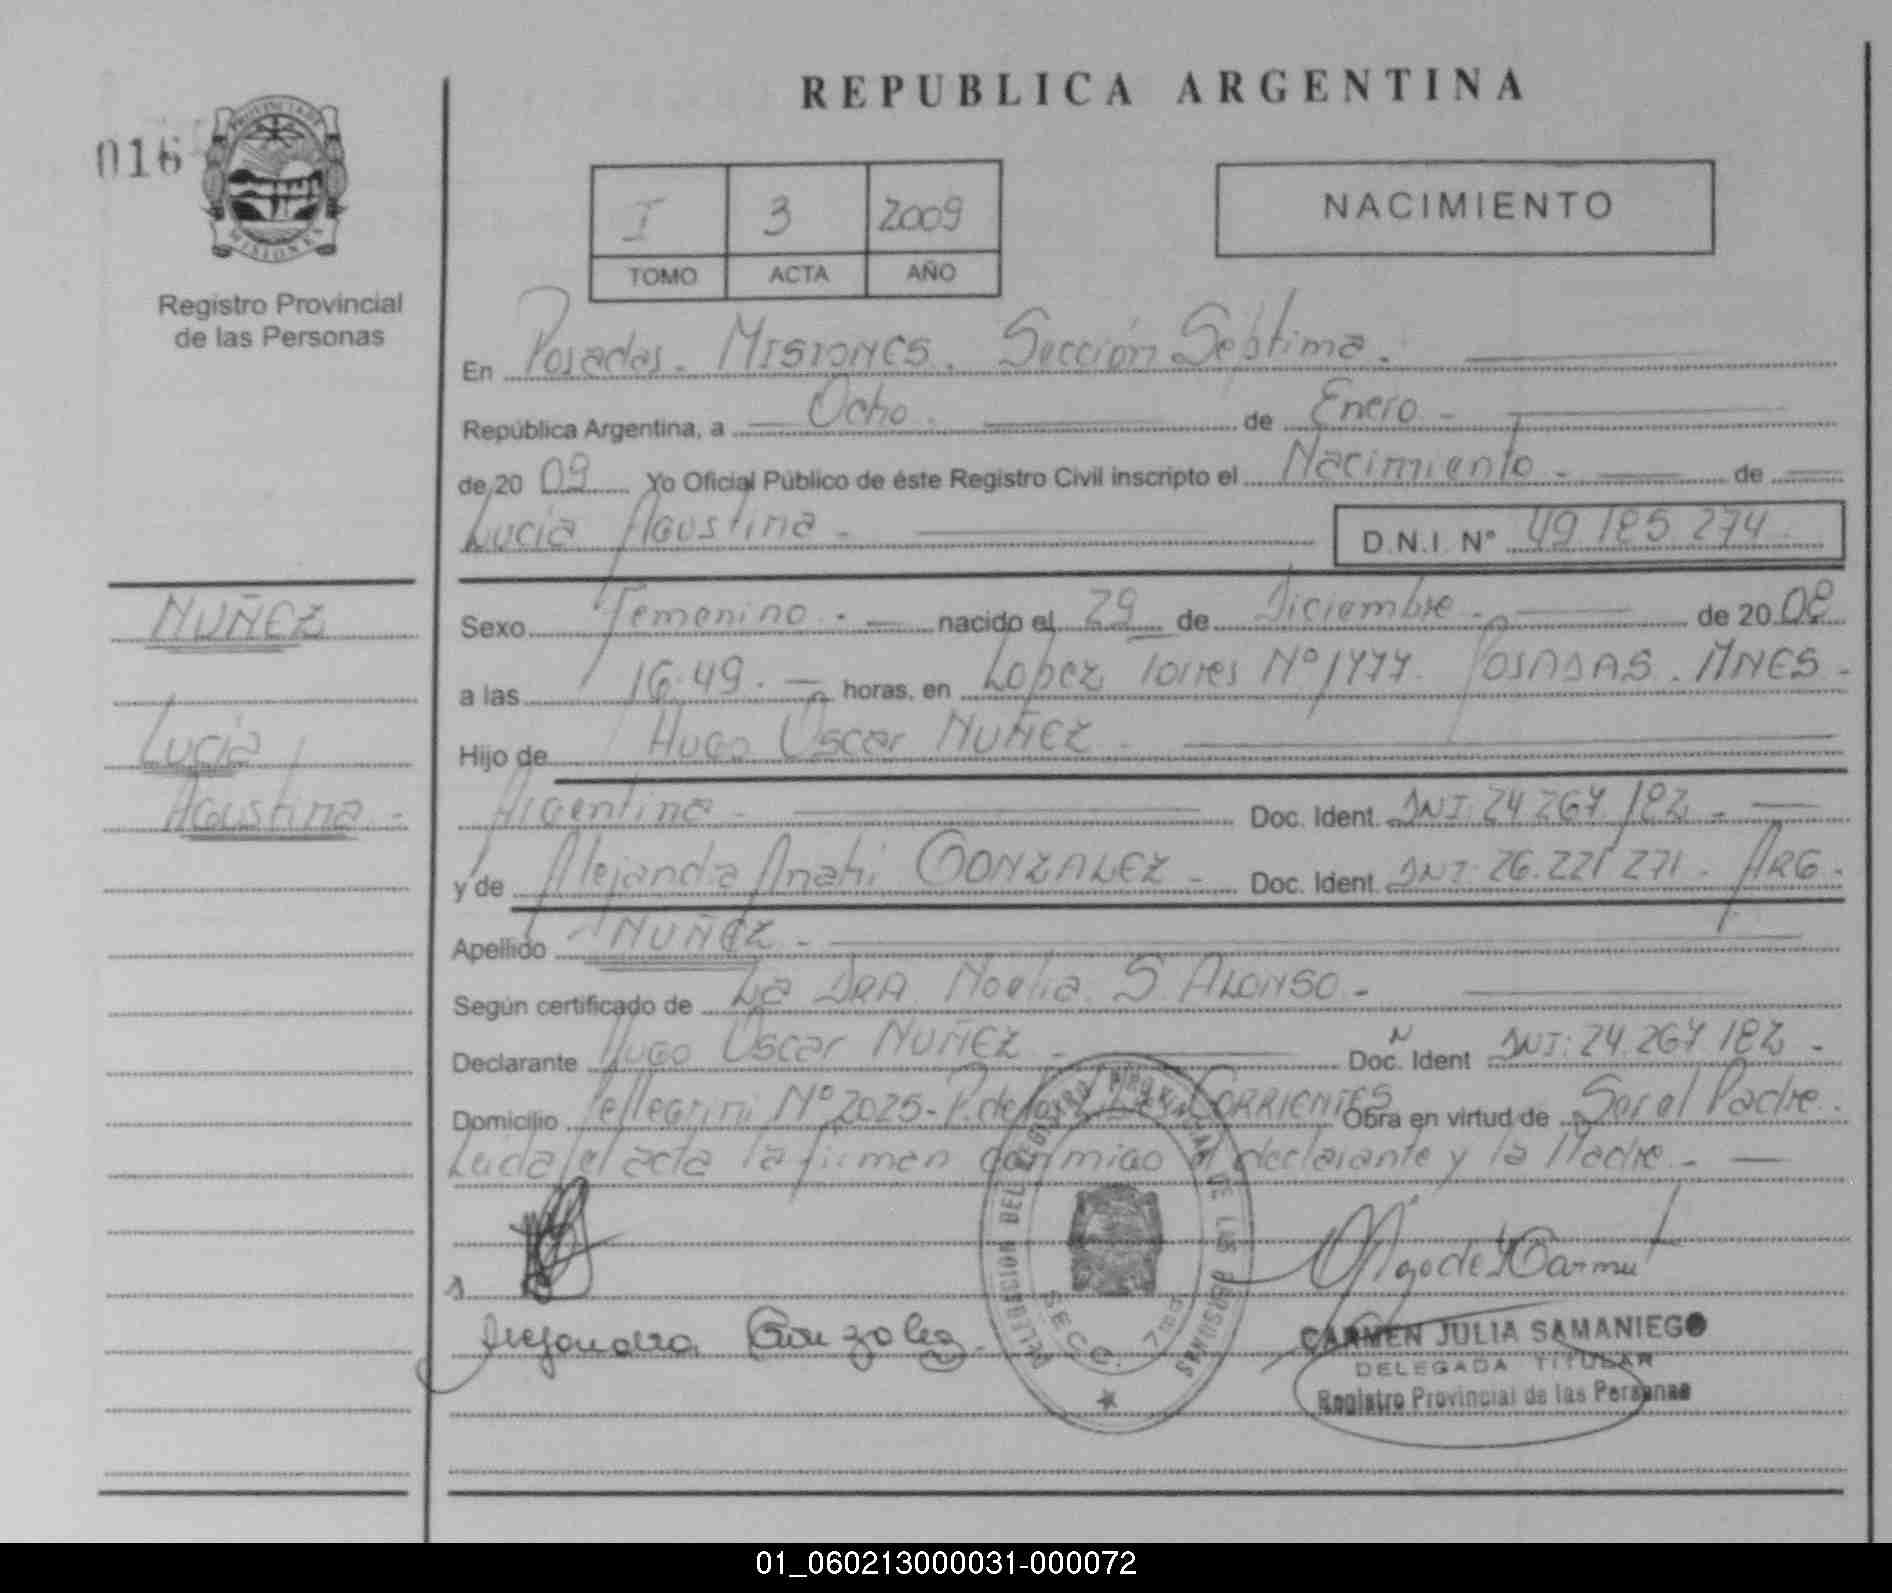 REPUBLICA ARGENTINA
016
PROVINCIA DE
MISIONES
Registro Provincial
de las Personas
I 3 2009
TOMO ACTA AÑO
NACIMIENTO
En Posadas - Misiones. Sección Septima.
República Argentina, a Ocho. de Enero -
de 2009 Yo Oficial Público de éste Registro Civil inscripto el Nacimiento - de
Lucia Agustina - D.N.I. N° 49 185 274
NUÑEZ
Lucia
Agustina -
Sexo Femenino - nacido el 29 de Diciembre - de 2008
a las 16.49. - horas, en Lopez Torres N° 1777. POSADAS. MNES -
Hijo de Hugo Oscar NUÑEZ -
Argentina - Doc. Ident. DNI: 24 267 182 -
y de Alejandra Anahi GONZALEZ - Doc. Ident. DNI: 26.221 271 - ARG.
Apellido NUÑEZ -
Según certificado de La DRA Noelia S. ALONSO -
Declarante Hugo Oscar NUÑEZ - Doc. Ident DNI: 24.267 182 -
Domicilio Pellegrini N° 2025 - P. de los CORRIENTES Obra en virtud de Ser el Padre.
Leida el acta la firman conmigo el declarante y la Madre. -
Alejandra Gonzalez
DELEGACION DEL REGISTRO PROVINCIAL DE LAS PERSONAS
SECC. 7ma
CARMEN JULIA SAMANIEGO
DELEGADA TITULAR
Registro Provincial de las Personas
01_060213000031-000072